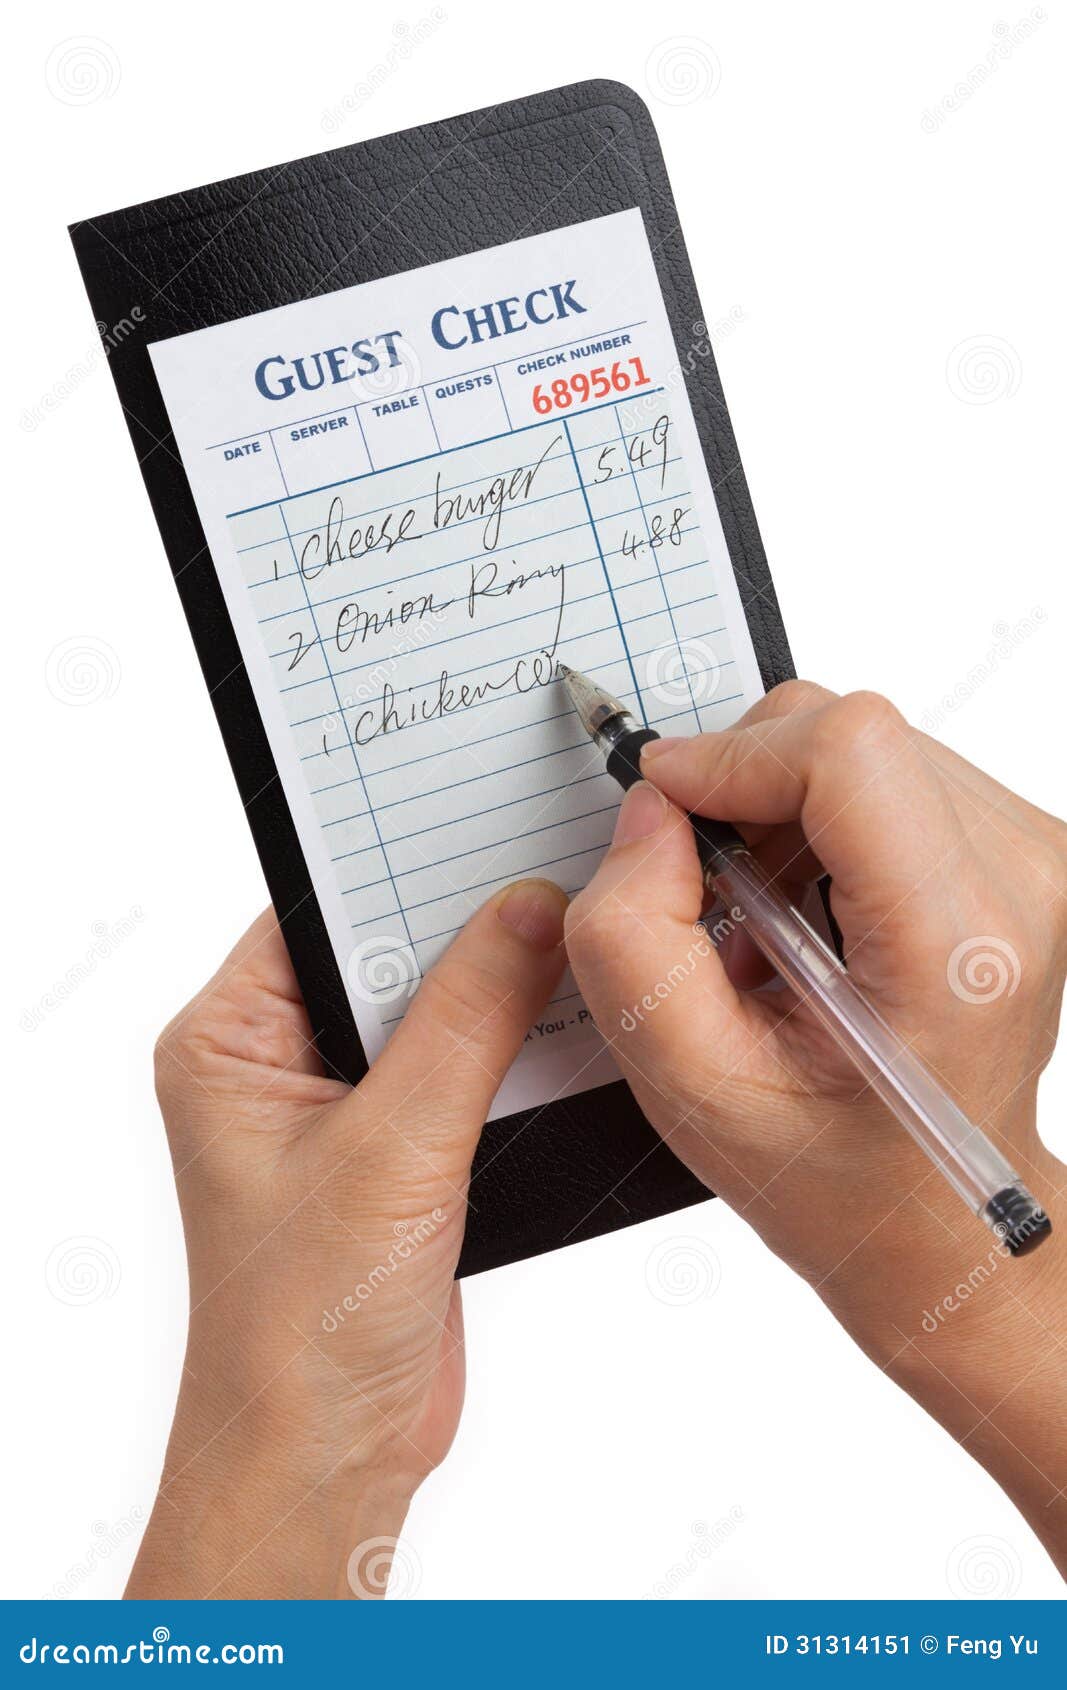 GUEST CHECK
DATE SERVER TABLE QUESTS CHECK NUMBER
689561
1 cheese burger 5.49
2 Onion Ring 4.88
1 chicken
k You - P
dreamstime.com ID 31314151 © Feng Yu